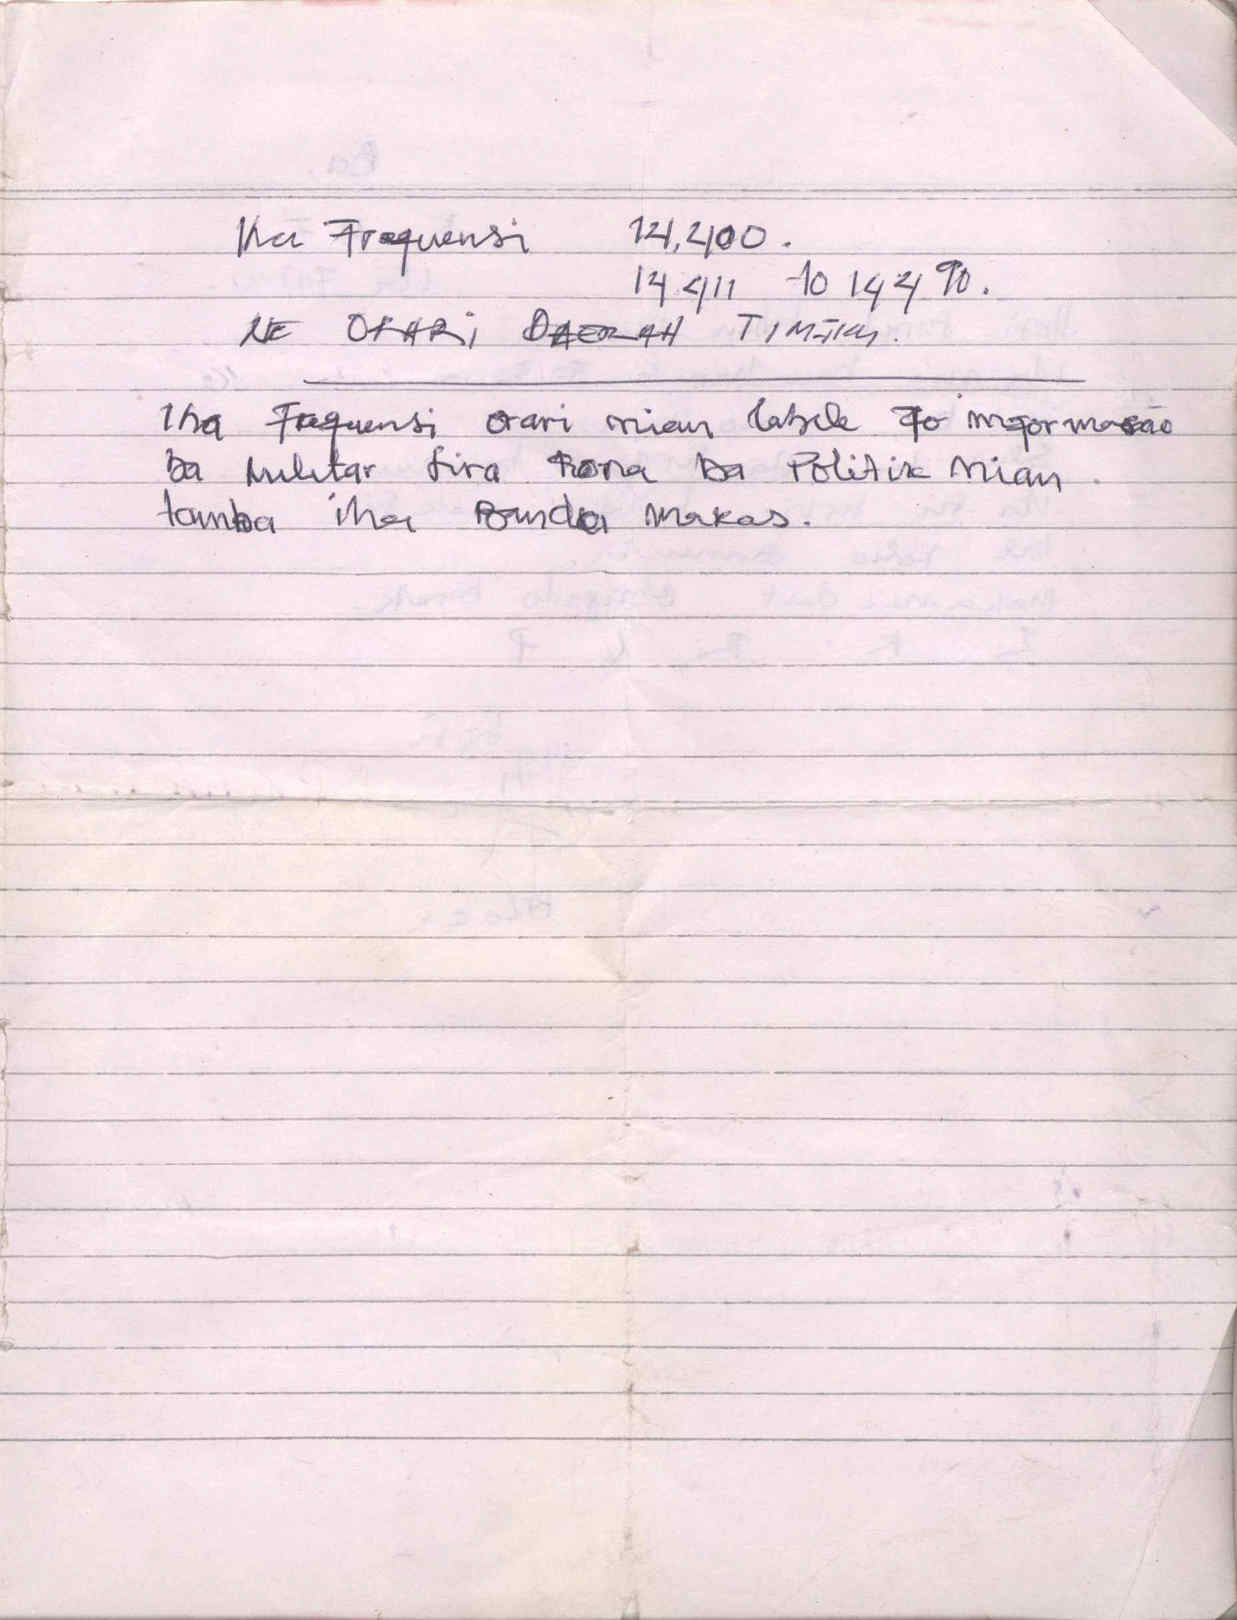 Iha Frequensi 14,400.
14.411 to 14490.
NE ORARI DAERAH TIMTIM.
Iha Frequensi orari nian labele fo informasão
ba militar sira kona ba Politik nian
tamba iha Banda makas.